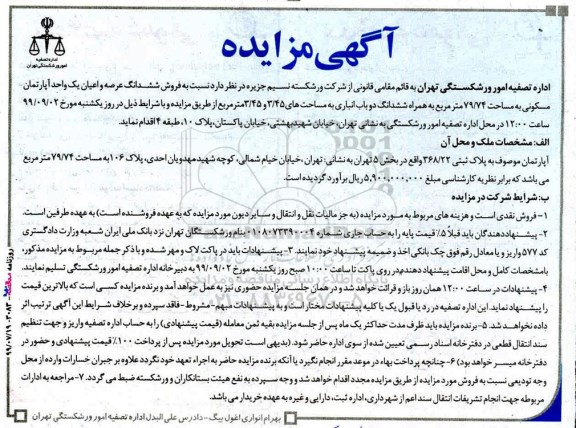 آگهی مزایده
اداره تصفیه
امور ورشکستگی تهران
اداره تصفیه امور ورشکستگی تهران به قائم مقامی قانونی از شرکت ورشکسته نسیم جزیره در نظر دارد نسبت به فروش ششدانگ عرصه و اعیان یک واحد آپارتمان
مسکونی به مساحت ۷۹/۷۴ متر مربع به همراه ششدانگ دو باب انباری به مساحت های ۳/۴۵ و ۳/۴۵ مترمربع از طریق مزایده و با شرایط ذیل در روز یکشنبه مورخ ۹۹/۰۹/۰۲
ساعت ۱۲:۰۰ در محل اداره تصفیه امور ورشکستگی به نشانی تهران، خیابان شهید بهشتی، خیابان پاکستان، پلاک ۱۰، طبقه ۴ اقدام نماید.
الف: مشخصات ملک و محل آن
آپارتمان موصوف به پلاک ثبتی ۳۶۸/۲۲ واقع در بخش ۵ تهران به نشانی: تهران، خیابان خیام شمالی، کوچه شهید مهدویان احدی، پلاک ۱۰۶ به مساحت ۷۹/۷۴ متر مربع
می باشد که برابر نظریه کارشناسی مبلغ ۵,۹۰۰,۰۰۰,۰۰۰ ریال برآورد گردیده است.
ب: شرایط شرکت در مزایده
۱- فروش نقدی است و هزینه های مربوط به مورد مزایده (به جز مالیات نقل و انتقال و سایر دیون مورد مزایده که به عهده فروشنده است) به عهده طرفین است.
۲- پیشنهاددهندگان باید قبلاً ۵٪ قیمت پایه را به حساب جاری شماره ۰۱۰۸۰۷۳۳۹۰۰۰۴ بنام ورشکستگان تهران نزد بانک ملی ایران شعبه وزارت دادگستری
کد ۵۷۷ واریز و یا معادل رقم فوق چک بانکی اخذ و ضمیمه پیشنهاد خود نمایند. ۳- پیشنهادات باید در پاکت لاک و مهر شده و با ذکر جمله مربوط به مزایده مذکور،
بامشخصات کامل و محل اقامت پیشنهاددهنده روی پاکت تا ساعت ۱۰:۰۰ صبح روز یکشنبه مورخ ۹۹/۰۹/۰۲ به دبیرخانه اداره تصفیه امور ورشکستگی تسلیم نمایند.
۴- پیشنهادات در ساعت ۱۲:۰۰ همان روز باز و قرائت خواهد شد و در همان جلسه مزایده حضوری نیز به عمل خواهد آمد و برنده مزایده کسی است که بالاترین قیمت
را پیشنهاد نماید. این اداره تصفیه در رد یا قبول یک یا کلیه پیشنهادات مختار است و به پیشنهادات مبهم- مشروط- فاقد سپرده و برخلاف شرایط این آگهی ترتیب اثر
داده نخواهد شد. ۵- برنده مزایده باید ظرف مدت حداکثر یک ماه پس از جلسه مزایده بقیه ثمن معامله (قیمت پیشنهادی) را به حساب اداره تصفیه واریز و جهت تنظیم
سند انتقال قطعی در دفترخانه اسناد رسمی تعیین شده از سوی اداره حاضر شود. (بدیهی است تحویل مورد مزایده پس از پرداخت ۱۰۰٪ قیمت پیشنهادی و حضور در
دفترخانه میسر خواهد بود) ۶- چنانچه پرداخت بهاء در موعد مقرر انجام نگیرد یا آنکه برنده مزایده حاضر به اجراء تعهد خود نگردد علاوه بر جبران خسارات وارده از محل
وجه تودیعی نسبت به فروش مورد مزایده از طریق مزایده مجدد اقدام خواهد شد و وجه سپرده به نفع هیئت بستانکاران و ورشکسته ضبط می گردد. ۷- مراجعه به ادارات
مربوطه جهت انجام تشریفات انتقال سند اعم از شهرداری، اداره ثبت، دارایی و غیره به عهده خریدار می باشد.
بهرام انواری اغول بیگ- دادرس علی البدل اداره تصفیه امور ورشکستگی تهران